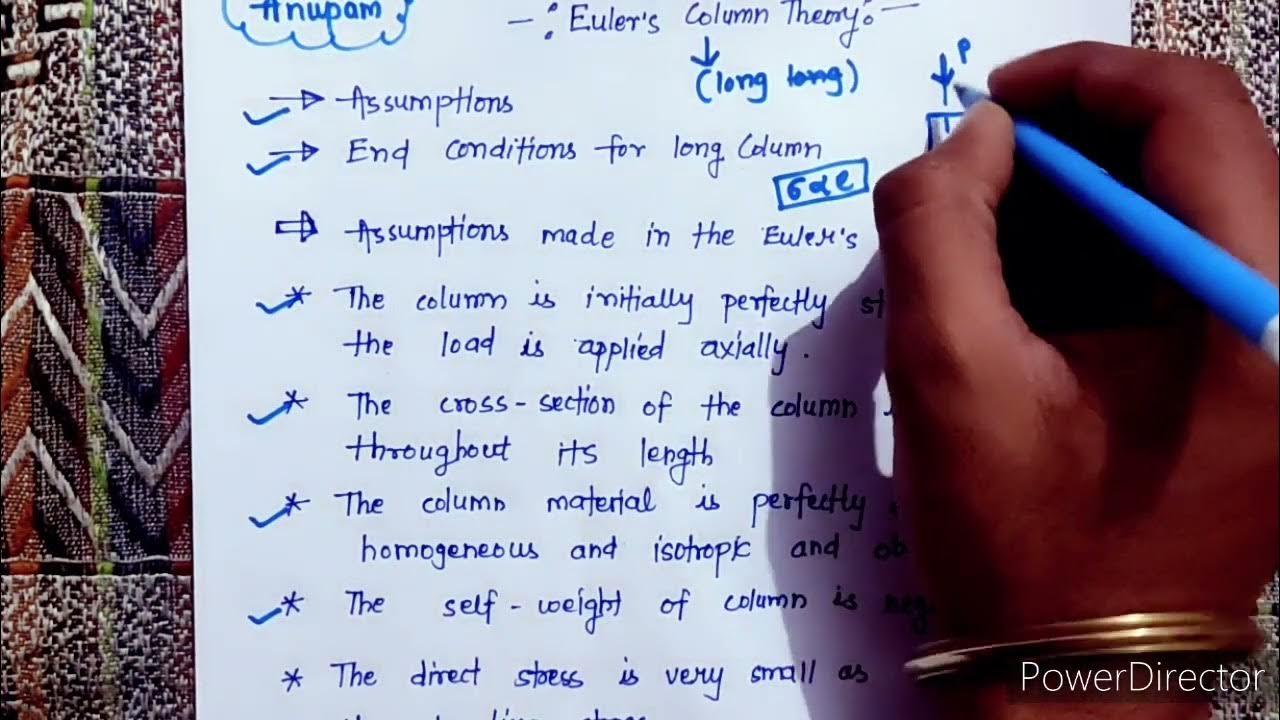 Anupam
-: Euler's Column Theory:-
(long long)
P
→ Assumptions
→ End conditions for long Column
σ α e
⇒ Assumptions made in the Euler's
* The column is initially perfectly
the load is applied axially.
* The cross-section of the column
throughout its length
* The column material is perfectly
homogeneous and isotropic and
* The self-weight of column is
* The direct stress is very small as
PowerDirector